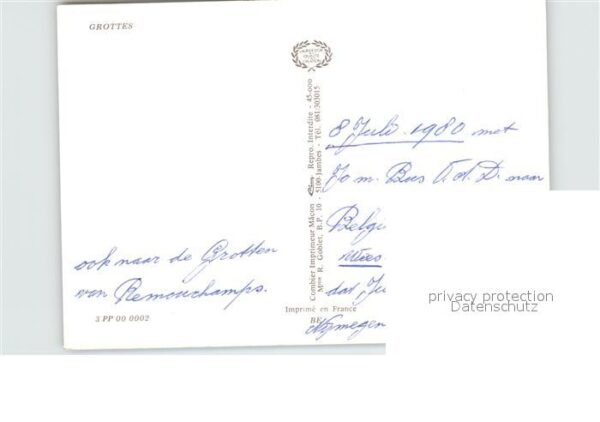 GROTTES
ook naar de Grotten
van Remouchamps.
3 PP 00 0002
Combier Imprimeur Mâcon Repro. Interdite - 45-000
Mme R. Goblet, B.P. 10 - 5100-Jambes - Tél. 081/303015
Imprimé en France
BE
8 Juli 1980 met
Jo m. Bus v.d. D. naar
Belgi
dat Ju
Nijmegen
privacy protection
Datenschutz